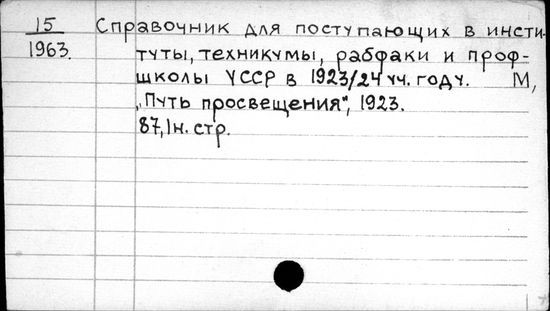 15 Справочник для поступающих в инсти-
1963. туты, техникумы, рабфаки и проф-
школы УССР в 1923/24 уч. году. М,
„Путь просвещения", 1923.
87, 1н. стр.